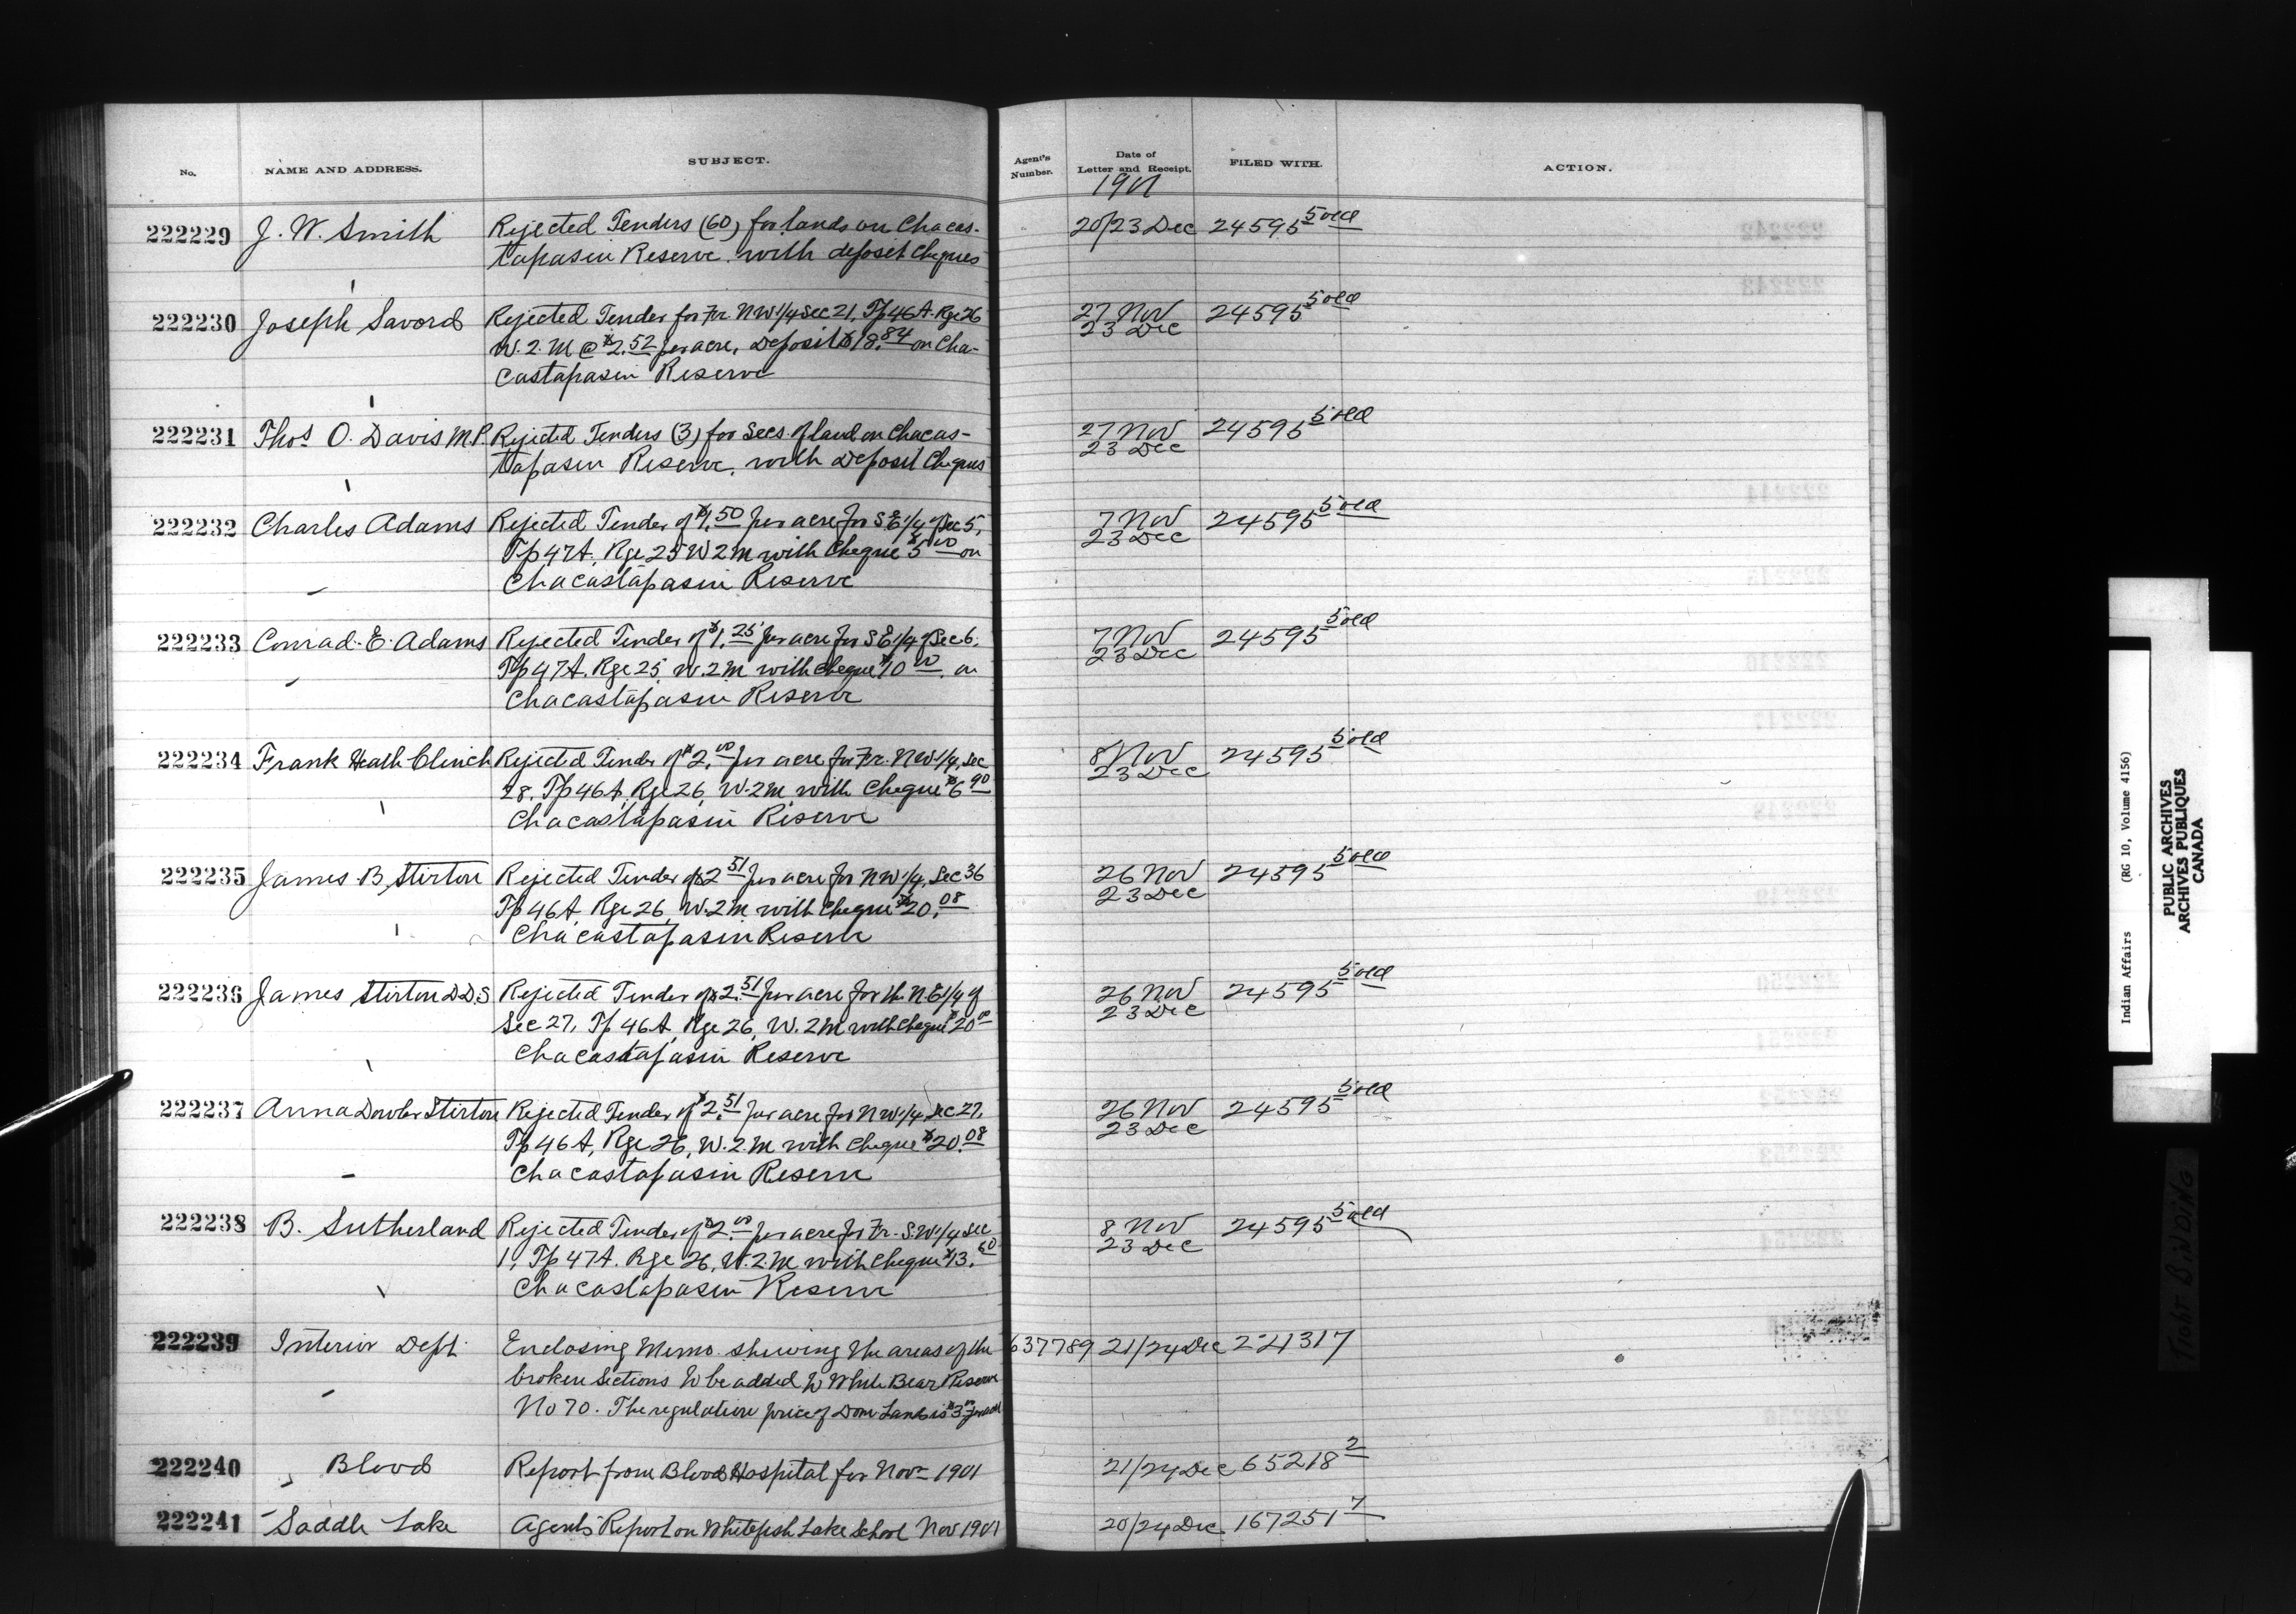 No. NAME AND ADDRESS. SUBJECT. Agent's Number. Date of Letter and Receipt. FILED WITH. ACTION.
1901
222229 J. W. Smith Rejected Tenders (60) for lands on Chacas- 20/23 Dec 24595 5 old
tapasin Reserve. with deposit Cheques
222230 Joseph Savord Rejected Tender for Fr. NW 1/4 Sec 21, Tp 46A. Rge 26 27 Nov 24595 5 old
W. 2. M @ $2.52 per acre, Deposit $18.84 on Cha- 23 Dec
castapasin Reserve
222231 Thos O. Davis M.P. Rejected Tenders (3) for Secs. of land on Chacas- 27 Nov 24595 5 old
tapasin Reserve, with Deposit Cheques 23 Dec
222232 Charles Adams Rejected Tender of $1.50 per acre for S.E 1/4 of Sec 5, 7 Nov 24595 5 old
Tp 47A, Rge 25 W 2 M with Cheque $5 00 on 23 Dec
Chacastapasin Reserve
222233 Conrad. E. Adams Rejected Tender of $1.25 per acre for S E 1/4 of Sec 6, 7 Nov 24595 5 old
Tp 47A. Rge 25, W. 2 M with Cheque $10 00. on 23 Dec
Chacastapasin Reserve
222234 Frank Heath Clinch Rejected Tender of $2.00 per acre for Fr. NW 1/4, Sec 8 Nov 24595 5 old
28, Tp 46A, Rge 26, W. 2 M, with Cheque $6 90 23 Dec
Chacastapasin Reserve
222235 James B Stirton Rejected Tender of $2 51 per acre for NW 1/4, Sec 36 26 Nov 24595 5 old
Tp 46A, Rge 26, W. 2 M, with Cheque $20.08 23 Dec
Chacastapasin Reserve
222236 James Stirton D.D.S Rejected Tender of $2.51 per acre for the N.E 1/4 of 26 Nov 24595 5 old
Sec 27, Tp 46A, Rge 26, W. 2 M with Cheque $20 00 23 Dec
Chacastapasin Reserve
222237 Anna Dowler Stirton Rejected Tender of $2.51 per acre for NW 1/4, Sec 27, 26 Nov 24595 5 old
Tp 46A, Rge 26, W. 2. M with Cheque $20.08 23 Dec
Chacastapasin Reserve
222238 B. Sutherland Rejected Tender of $2.00 per acre for Fr. S.W 1/4 Sec 8 Nov 24595 5 old
1, Tp 47A. Rge 26, W. 2. M with Cheque $13.60 23 Dec
Chacastapasin Reserve
222239 Interior Dept. Enclosing Memo. shewing the areas of the 637789 21/24 Dec 221317
broken Sections to be added to White Bear Reserve
No 70. The regulation price of Dom Lands is $3 00 per acre
222240 Blood Report from Blood Hospital for Novr 1901 21/24 Dec 65218 2
222241 Saddle Lake Agent's Report on Whitefish Lake School Nov 1901 20/24 Dec 167251 7
Indian Affairs (RG 10, Volume 4156)
PUBLIC ARCHIVES
ARCHIVES PUBLIQUES
CANADA
TIGHT BINDING